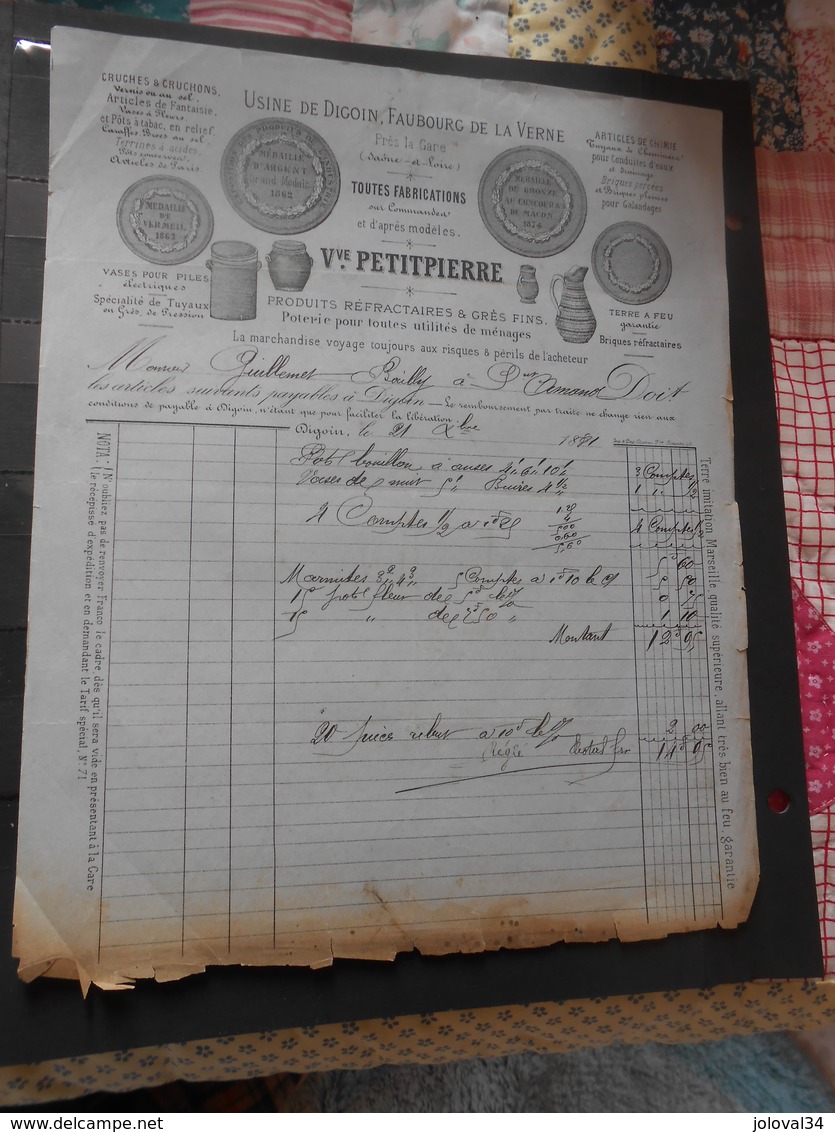 CRUCHES & CRUCHONS,
Vernis ou au sel.
Articles de Fantaisie,
Vases à Fleurs
et Pôts à tabac, en relief.
Carafes Brocs au sel
Terrines à acides,
Pôts conserves,
Articles de Paris
USINE DE DIGOIN, FAUBOURG DE LA VERNE
Près la Gare
(Saône-et-Loire)
TOUTES FABRICATIONS
sur Commandes
et d'après modèles.
ARTICLES DE CHIMIE
Tuyaux de Cheminées
pour Conduites d'eaux
et drainage
Briques percées
et Briques pleines
pour Galandages
MÉDAILLE
D'ARGENT
Grand Module
1862
MÉDAILLE
DE BRONZE
AU CONCOURS
DE MACON
1874
MÉDAILLE
DE
VERMEIL
1863
VVE PETITPIERRE
VASES POUR PILES
électriques
Spécialité de Tuyaux
en Grès, de Pression
TERRE A FEU
garantie
Briques réfractaires
PRODUITS RÉFRACTAIRES & GRÈS FINS.
Poterie pour toutes utilités de ménages
La marchandise voyage toujours aux risques & périls de l'acheteur
Monsieur Guillemet Bailly à St Amand Doit
les articles suivants payables à Digoin — Le remboursement par traite ne change rien aux
conditions de payable à Digoin, n'étant que pour faciliter la libération.
Digoin, le 21 Xbre 1881
Pots bouillon à anses 3 Comptes
Vases de nuit Buires 4 1/2 1 " 1/2
4 Comptes 1/2 a 4 Comptes 1/2
5 60
Marmites 5 Comptes a 1 10 le 5 50
pots fleur de 0 75
" de 2 50 " 1 10
Montant 12 95
20 pièces rebut a 10 le % 2 00
Réglé 14 95
NOTA: N'oubliez pas de renvoyer Franco le cadre, dès qu'il sera vide en présentant à la Gare
le récépissé d'expédition et en demandant le Tarif spécial, No 71
Terre imitation Marseille qualité supérieure, allant très bien au feu, garantie
delcampe.net
joloval34